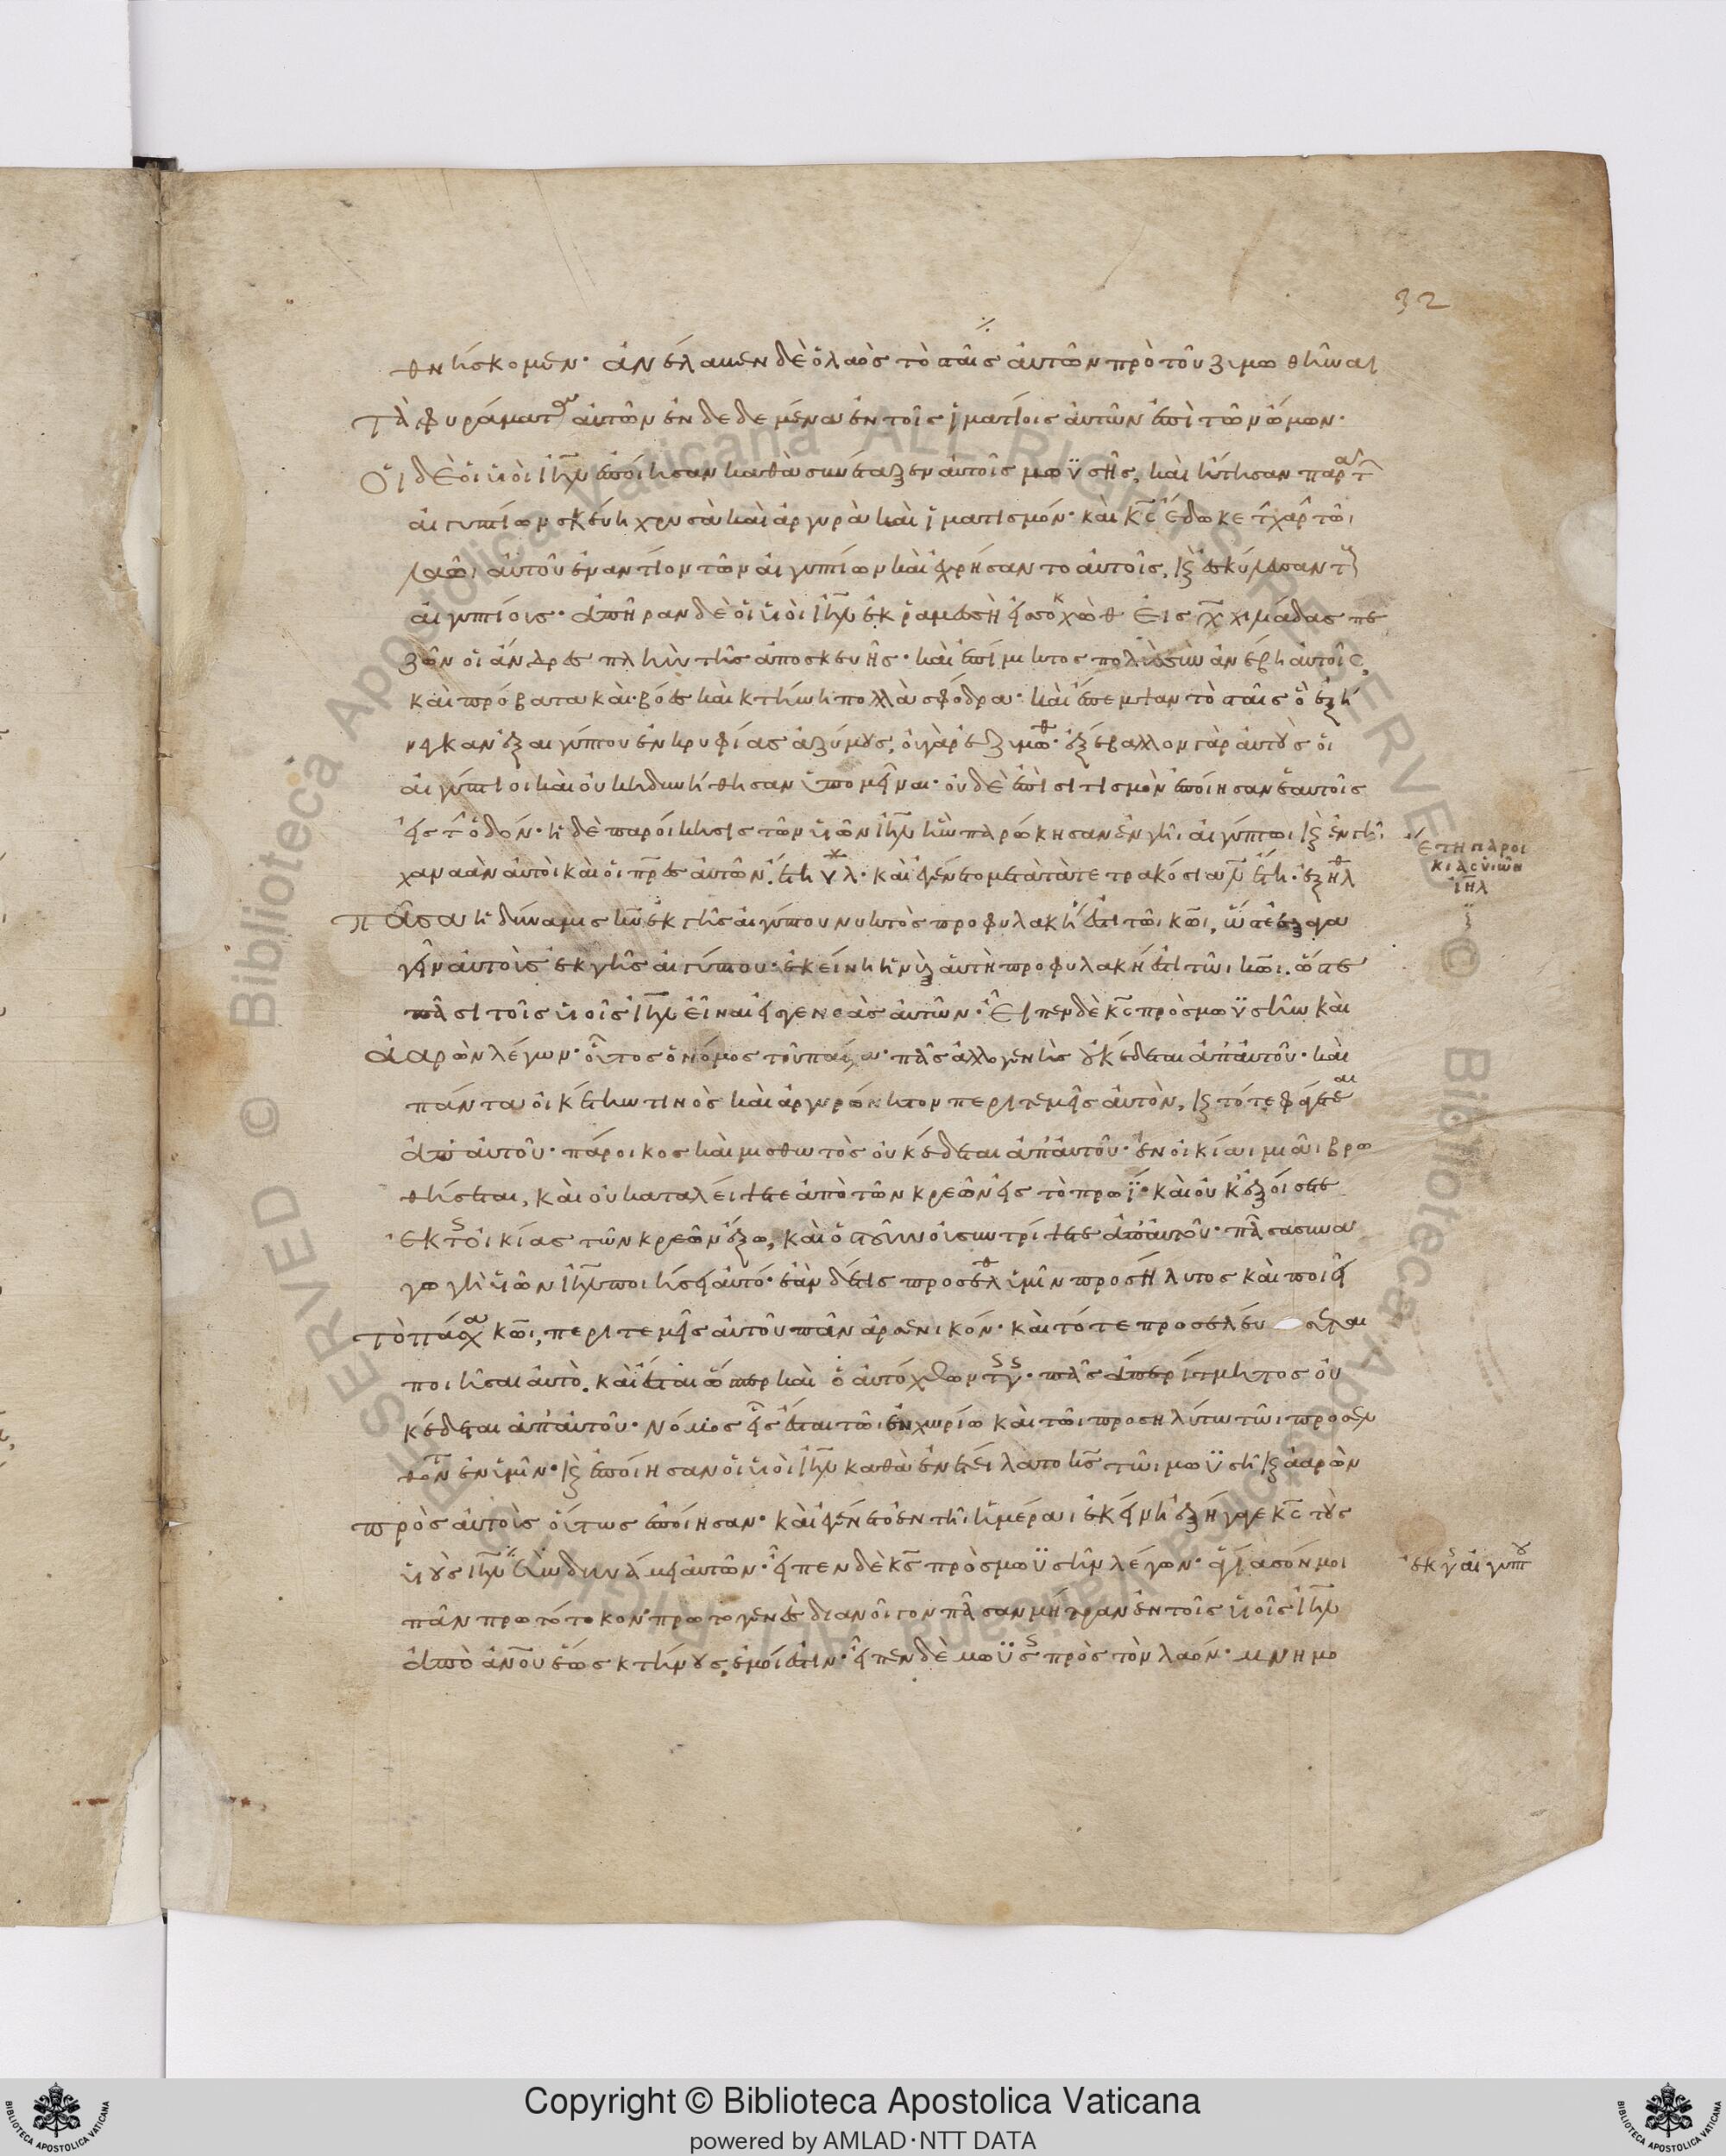 32
θνήσκομεν· ἀνέλαβεν δὲ ὁ λαὸς τὸ σταῖς αὐτῶν πρὸ τοῦ ζυμωθῆναι
τὰ φυράματα αὐτῶν ἐνδεδεμένα ἐν τοῖς ἱματίοις αὐτῶν ἐπὶ τῶν ὤμων·
Οἱ δὲ οἱ υἱοὶ ιηλ ἐποίησαν καθὰ συνέταξεν αὐτοῖς μωϋσῆς, καὶ ἤτησαν παρὰ τ
αἰγυπτίων σκεύη χρυσᾶ καὶ ἀργυρᾶ καὶ ἱματισμόν· καὶ κς ἔδωκε τ χάρ τῶι
λαῶι αὐτοῦ ἐναντίον τῶν αἰγυπτίων καὶ ἐχρήσαντο αὐτοῖς, κ ἐσκύλευσαν τ
αἰγυπτίους· ἀπῆραν δὲ οἱ υἱοὶ ιηλ ἐκ ῥαμεσσῆ εἰς σοκχὼθ εἰς χ χιλιάδας πε
ζῶν οἱ ἄνδρες πλὴν τῆς ἀποσκευῆς· καὶ ἐπίμικτος πολὺς συνανέβη αὐτοῖς,
καὶ πρόβατα καὶ βόες καὶ κτήνη πολλὰ σφόδρα· καὶ ἔπεψαν τὸ σταῖς ὃ ἐξή
νεγκαν ἐξ αἰγύπτου ἐνκρυφίας ἀζύμους, οὐ γὰρ ἐζυμώθ· ἐξέβαλλον γὰρ αὐτοὺς οἱ
αἰγύπτιοι καὶ οὐκ ἠδυνήθησαν ὑπομεῖναι· οὐδὲ ἐπισιτισμὸν ἐποίησαν ἑαυτοῖς
εἰς τ ὁδόν· ἡ δὲ παροίκησις τῶν υἱῶν ιηλ ἣν παρώκησαν ἐν γῆι αἰγύπτωι κ ἐν γῆι
χαναὰν αὐτοὶ καὶ οἱ πρες αὐτῶν, ἔτη υλ· καὶ ἐγένετο μετὰ τὰ τετρακόσια λ ἔτη· ἐξῆλθ
πᾶσα ἡ δύναμις κυ ἐκ γῆς αἰγύπτου νυκτὸς προφυλακή ἐστι τῶι κωι, ὥστε ἐξαγα
γεῖν αὐτοὺς ἐκ γῆς αἰγύπτου· ἐκείνη ἡ νὺξ αὕτη προφυλακή ἐστι τῶι κωι. ὥστε
πᾶσι τοῖς υἱοῖς ιηλ εἶναι εἰς γενεὰς αὐτῶν· Εἶπεν δὲ κς πρὸς μωϋσῆν καὶ
ἀαρὼν λέγων· οὗτος ὁ νόμος τοῦ πάσχα· πᾶς ἀλλογενὴς οὐκ ἔδεται ἀπ᾽ αὐτοῦ· καὶ
πάντα οἰκέτην τινὸς καὶ ἀργυρώνητον περιτεμεῖς αὐτὸν, κ τότε φάγεται
ἀπ᾽ αὐτοῦ· πάροικος καὶ μισθωτὸς οὐκ ἔδεται ἀπ᾽ αὐτοῦ· ἐν οἰκίαι μιᾶι βρω
θήσεται, καὶ οὐ καταλείψετε ἀπὸ τῶν κρεῶν εἰς τὸ πρωΐ· καὶ οὐκ ἐξοίσετε
ἐκ τ οἰκίας τῶν κρεῶν ἔξω, καὶ ὀστοῦν οὐ συντρίψετε ἀπ᾽ αὐτοῦ· πᾶσα συνα
γωγὴ υἱῶν ιηλ ποιήσει αὐτό· ἐὰν δέ τις προσέλθ ὑμῖν προσήλυτος καὶ ποιεῖ
τὸ πάσχα κωι, περιτεμεῖς αὐτοῦ πᾶν ἀρσενικόν· καὶ τότε προσελεύσεται
ποιῆσαι αὐτὸ, καὶ ἔσται ὥσπερ καὶ ὁ αὐτόχθων τ γ· πᾶς ἀπερίτμητος οὐ
κ ἔδεται ἀπ᾽ αὐτοῦ· νόμος εἷς ἔσται τῶι ἐνχωρίω καὶ τῶι προσηλύτω τῶι προσελ
θόντ ἐν ὑμῖν· κ ἐποίησαν οἱ υἱοὶ ιηλ καθὰ ἐνετείλατο κς τῶι μωϋσῆ κ ἀαρὼν
πρὸς αὐτοὺς οὕτως ἐποίησαν· καὶ ἐγένετο ἐν τῆι ἡμέραι ἐκείνη ἐξήγαγε κς τοὺς
υἱοὺς ιηλ σὺν δυνάμει αὐτῶν· εἶπεν δὲ κς πρὸς μωϋσῆν λέγων· ἁγίασόν μοι
πᾶν πρωτότοκον πρωτογενὲς διανοῖγον πᾶσαν μήτραν ἐν τοῖς υἱοῖς ιηλ
ἀπὸ ανου ἕως κτήνους, ἐμοί ἐστιν· εἶπεν δὲ μωϋσς πρὸς τὸν λαόν· μνημο
ἔτη παροι
κίας υἱῶν
ιηλ
ἐκ γ αἰγυπτου
Copyright © Biblioteca Apostolica Vaticana
powered by AMLAD·NTT DATA